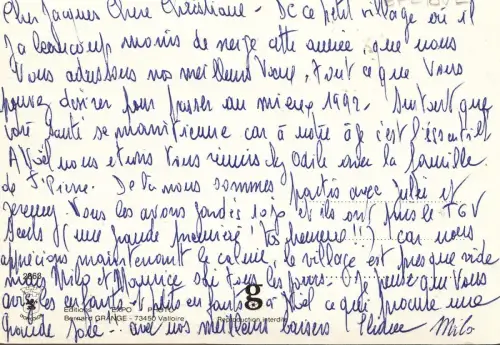 Cher Jacques Chère Christiane - De ce petit village où il
y a beaucoup moins de neige cette année, que nous
vous adressons nos meilleurs vœux, tout ce que vous
pouvez désirer pour passer au mieux 1992. Surtout que
votre santé se maintienne car à notre âge c'est l'essentiel
A Noël nous étions tous réunis chez Odile avec la famille
de J. Pierre. De là nous sommes partis avec Julie et
Jeremy. Vous les avons gardés 10 js et ils ont pris le TGV
seuls (une grande première! très heureux!!) car nous
apprécions maintenant le calme, le village est presque vide
mais Milo et Maurice ski tous les jours. Je pense que vous
avez les enfants et petits enfants à Noël ce qui procure une
grande joie!! avec nos meilleurs baisers Milo
2068
Editions EXPO PHOTO
Bernard GRANGE - 73450 Valloire
g
Reproduction interdite